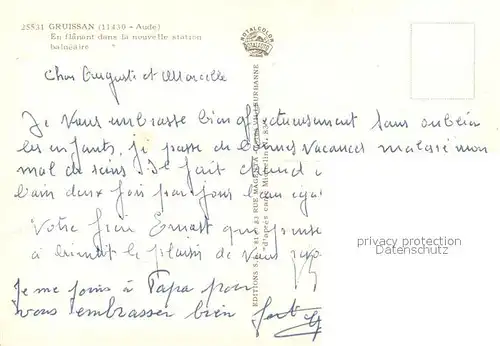 25531 GRUISSAN (11430 - Aude)
En flânant dans la nouvelle station
balnéaire
ROYALCOLOR
Cher Auguste et Marcelle
Je vous embrasse bien affectueusement sans oublier
les enfants. je passe de bonnes vacances malgré mon
mal de reins. Il fait chaud
bain deux fois par jour l'eau
Votre frère Ernest qui pense
à bientôt le plaisir de vous
Je me joins à Papa pour
vous embrasser bien fort
EDITIONS
RUE MAGENTA
VILLEURBANNE
"d'après carte Michelin"
privacy protection
AnsichtskartenCenter